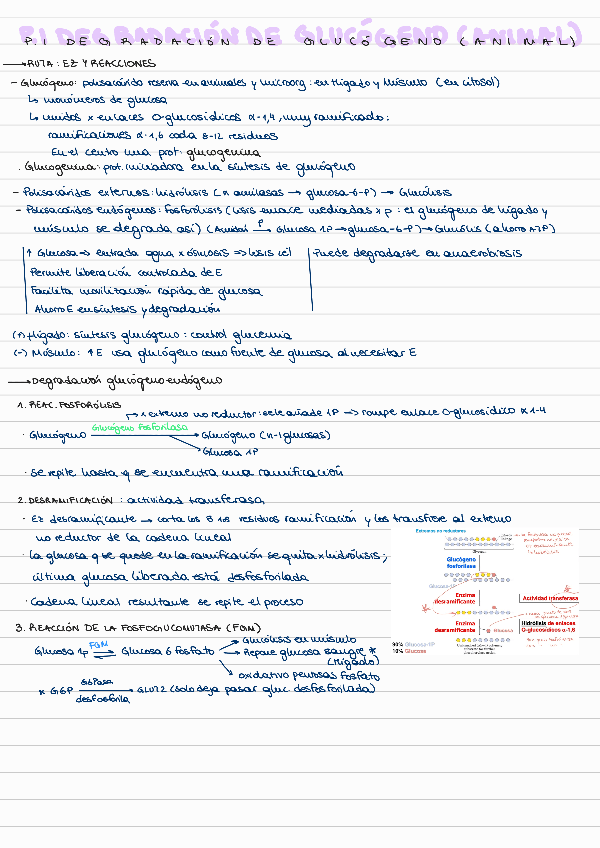 P.1 DEGRADACIÓN DE GLUCÓGENO (ANIMAL)
→ RUTA: EZ Y REACCIONES
- Glucógeno: polisacárido reserva en animales y microorg: en Hígado y Músculo (en citosol)
↳ monómeros de glucosa
↳ unidos x enlaces O-glucosídicos α-1,4, muy ramificado:
ramificaciones α-1,6 cada 8-12 residuos
En el centro una prot: glucogenina
· Glucogenina: prot. iniciadora en la síntesis de glucógeno
- Polisacáridos externos: hidrólisis (x amilasas → glucosa-6-P) → Glucólisis
- Polisacáridos endógenos: fosforólisis (lisis enlace mediadas x p: el glucógeno de hígado y
músculo se degrada así) (Almidón P→ Glucosa 1P → glucosa-6-P) → Glucólisis (ahorro ATP)
↑ Glucosa ⇒ entrada agua x ósmosis ⇒ lisis cél
Puede degradarse en anaerobiosis
Permite liberación controlada de E
Facilita movilización rápida de glucosa
Ahorro E en síntesis y degradación
(+) Hígado: síntesis glucógeno: control glucemia
(-) Músculo: ↑E usa glucógeno como fuente de glucosa al necesitar E
→ Degradación glucógeno endógeno
1. REAC. FOSFORÓLISIS
→ 1 extremo no reductor: se le añade 1P ⇒ rompe enlace O-glucosídico α 1-4
· Glucógeno Glucógeno fosforilasa → Glucógeno (n-1 glucosas)
Glucosa 1P
· Se repite hasta q se encuentra una ramificación
2. DESRAMIFICACIÓN: actividad transferasa
· Ez desramificante → corta los 6 ls residuos ramificación y los transfiere al extremo
no reductor de la cadena lineal
· La glucosa q se quede en la ramificación se quita x hidrólisis;
última glucosa liberada está desfosforilada
· Cadena lineal resultante se repite el proceso
Extremos no reductores
Glucógeno
fosforilasa
Glucosa-1P
Enzima
desramificante
Actividad transferasa
Enzima
desramificante
Glucosa
Hidrólisis de enlaces
O-glucosídicos α-1,6
90% Glucosa-1P
10% Glucosa
3. REACCIÓN DE LA FOSFOGLUCOMUTASA (FGM)
Glucosa 1p FGM ⇌ Glucosa 6 fosfato
→ Glucólisis en músculo
→ Repone glucosa sangre *
(Hígado)
→ oxidativo pentosas fosfato
* G6P G6Pasa desfosforila → GLUT2 (solo deja pasar gluc desfosforilada)